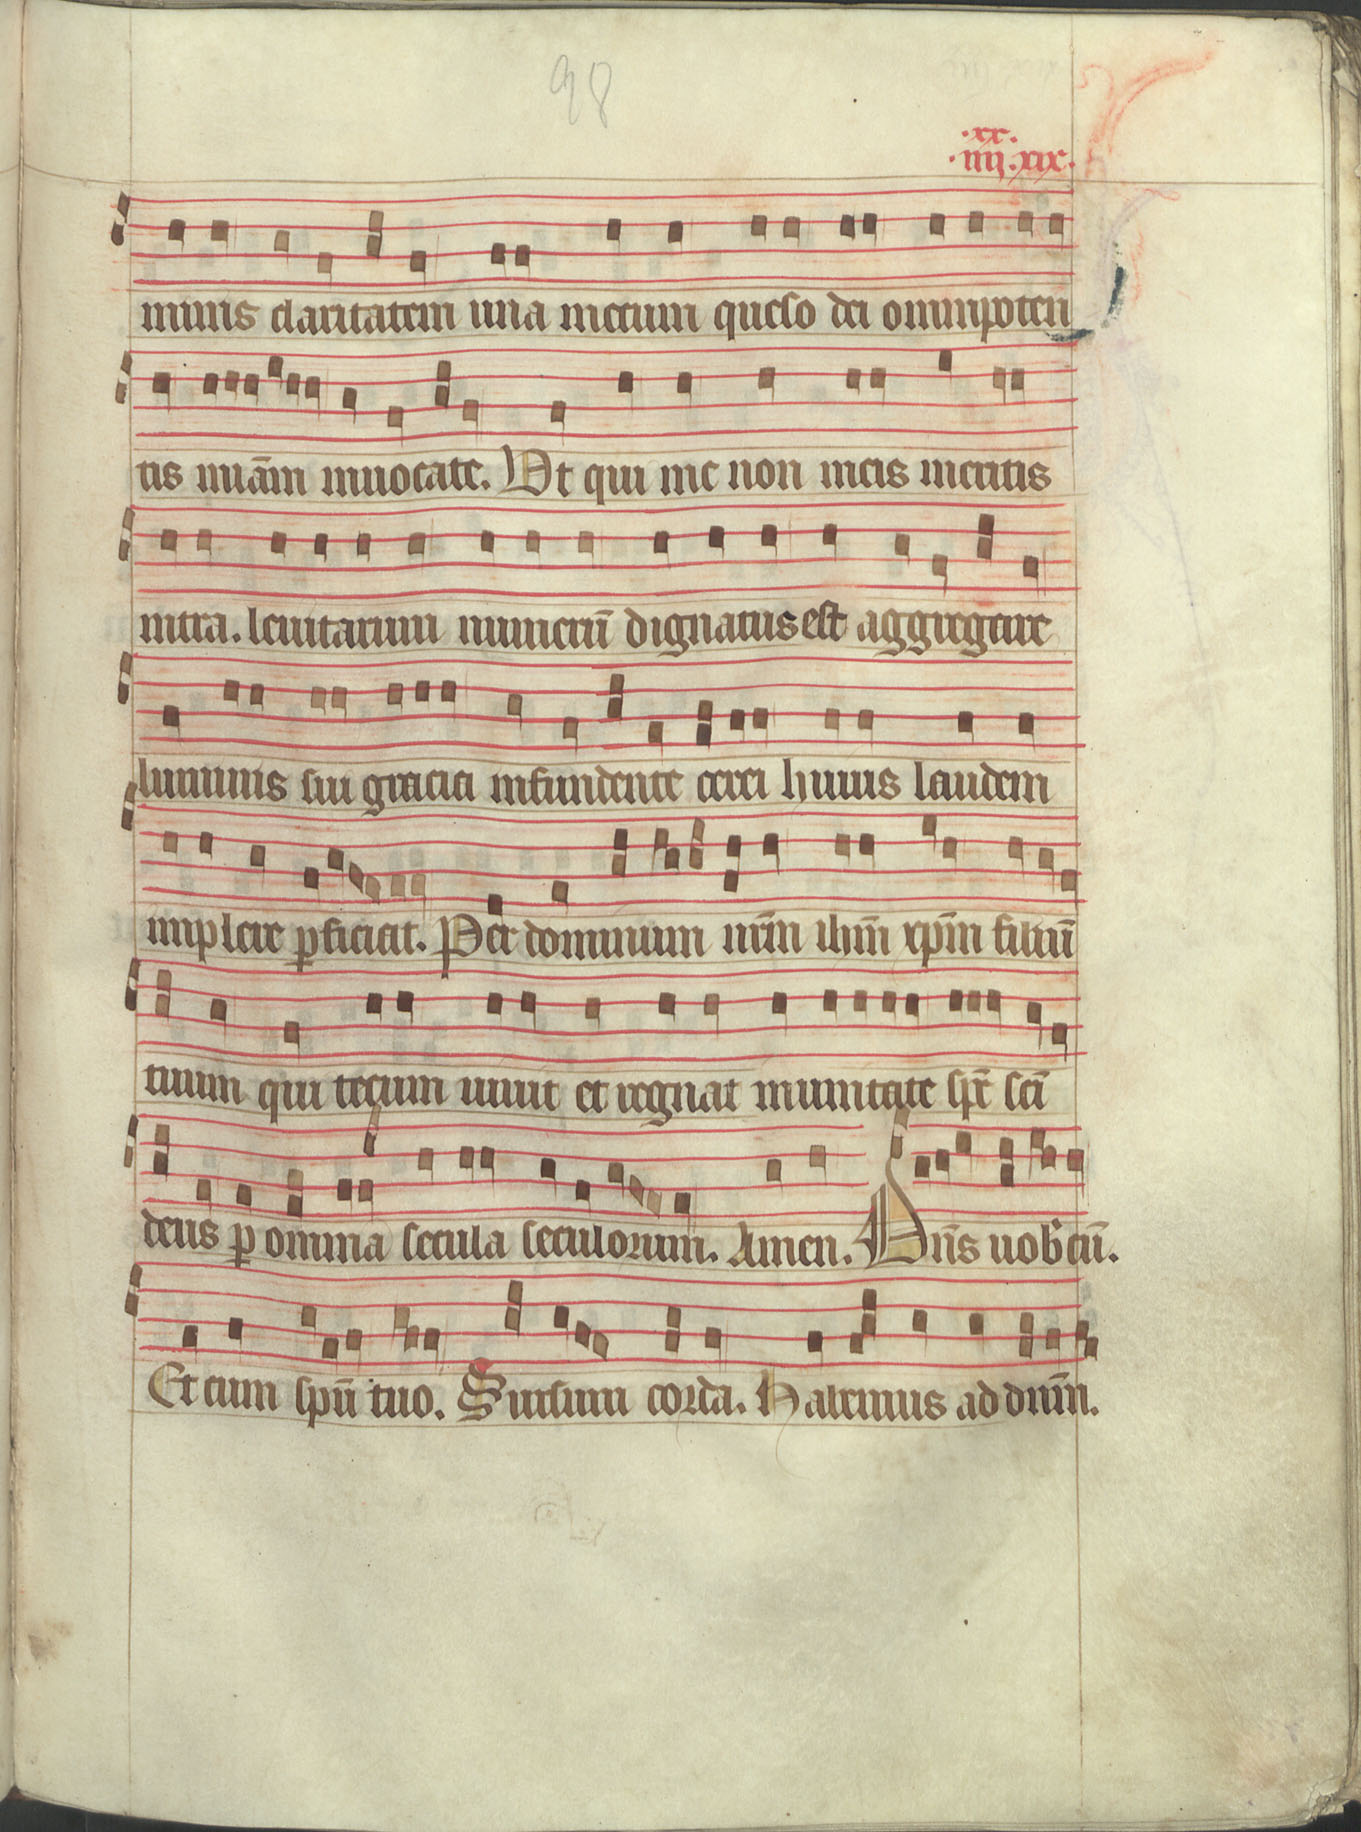 98
.xx.
.iiij.xix.
minis claritatem una mecum queso dei omnipoten
tis miam̄ inuocate. Ut qui me non meis meritis
intra. leuitarum numerū dignatus est aggregare
luminis sui gracia infundente cerei huius laudem
implere ꝑficiat. Per dominum nrm̄ ihm̄ xpm̄ filiū
tuum qui tecum uiuit et regnat in unitate spc̄ sci̅
deus ꝑ omnia secula seculorum. Amen. Dn̄s uobcū.
Et cum spū tuo. Sursum corda. Habemus ad dnm̄.